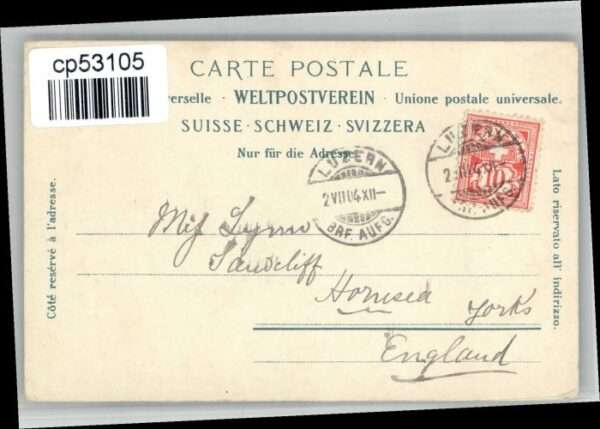 cp53105
CARTE POSTALE
erselle · WELTPOSTVEREIN · Unione postale universale.
SUISSE · SCHWEIZ · SVIZZERA
Nur für die Adresse
LUZERN
2 VII 04 XII—
BRF. AUFG.
LUZERN
BRF. AUFG.
10
Côté resérvé à l'adresse.
Lato riservato all' indirizzo.
Miss
Sandcliff
Hornsea Yorks
England